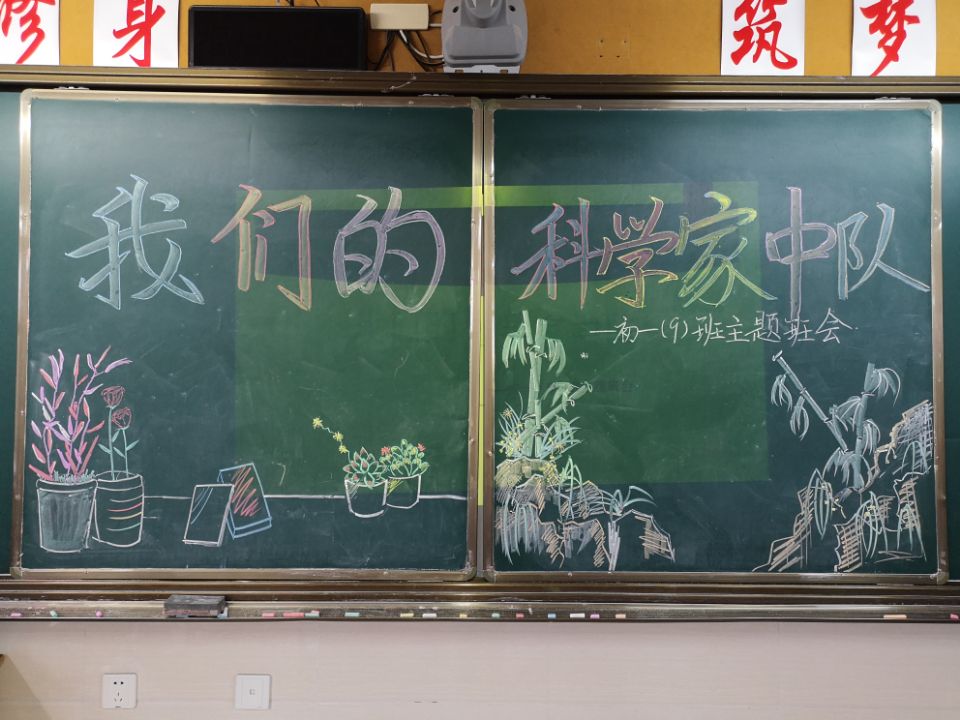 修身 筑梦
我们的科学家中队
—初一(9)班主题班会